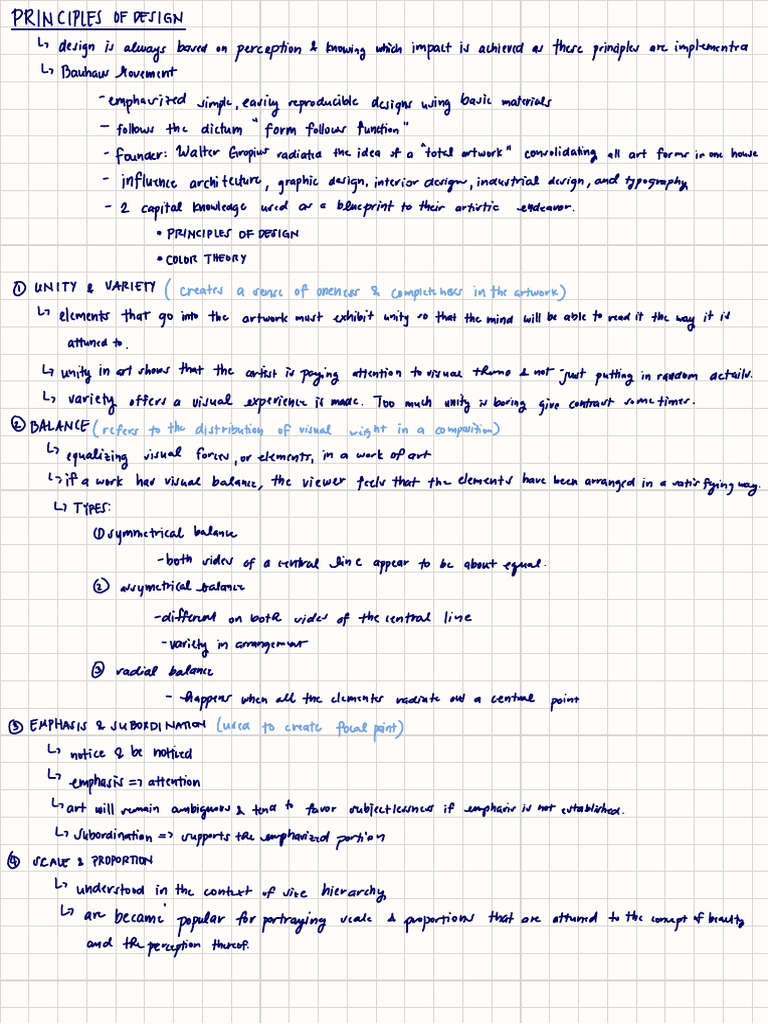 PRINCIPLES OF DESIGN
↳ design is always based on perception & knowing which impact is achieved as these principles are implemented
↳ Bauhaus Movement
- emphasized simple, easily reproducible designs using basic materials
- follows the dictum "form follows function"
- founder: Walter Gropius radiated the idea of a "total artwork" consolidating all art forms in one house
- influence architecture, graphic design, interior design, industrial design, and typography
- 2 capital knowledge used as a blueprint to their artistic endeavor.
• PRINCIPLES OF DESIGN
• COLOR THEORY
① UNITY & VARIETY (creates a sense of oneness & completeness in the artwork)
↳ elements that go into the artwork must exhibit unity so that the mind will be able to read it the way it is
attuned to.
↳ unity in art shows that the artist is paying attention to visual theme & not just putting in random details.
↳ variety offers a visual experience is made. Too much unity is boring give contrast sometimes.
② BALANCE (refers to the distribution of visual weight in a composition)
↳ equalizing visual forces, or elements, in a work of art
↳ if a work has visual balance, the viewer feels that the elements have been arranged in a satisfying way.
↳ TYPES:
① symmetrical balance
- both sides of a central line appear to be about equal.
② assymetrical balance
- different on both sides of the central line
- variety in arrangement
③ radial balance
- happens when all the elements radiate out a central point
③ EMPHASIS & SUBORDINATION (used to create focal point)
↳ notice & be noticed
↳ emphasis => attention
↳ art will remain ambiguous & tend to favor subjectlessness if emphasis is not established.
↳ subordination => supports the emphasized portion
④ SCALE & PROPORTION
↳ understood in the context of size hierarchy
↳ art became popular for portraying scale & proportions that are attuned to the concept of beauty
and the perception thereof.